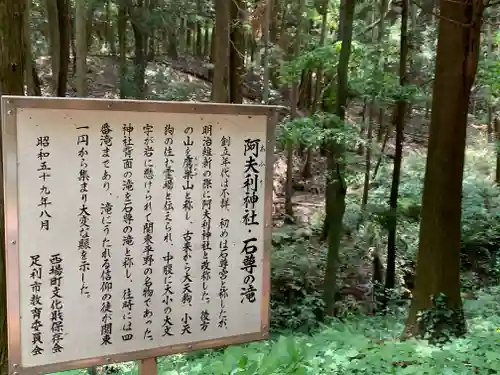 阿夫利神社・石尊の滝
創立年代は不詳、初めは石尊宮と称したが、
明治維新の際に阿夫利神社と改称した。後方
の山を鷹巣山と称し、古来から大天狗、小天
狗の住む霊場と伝えられ、中腹に大小の大天
字が岩に懸けられて関東平野の名物であった。
神社背面の滝を石尊の滝と称し、往時には四
番滝まであり、滝にうたれる信仰の徒が関東
一円から集まり大変な賑を示した。
昭和五十九年八月
西場町文化財保存会
足利市教育委員会